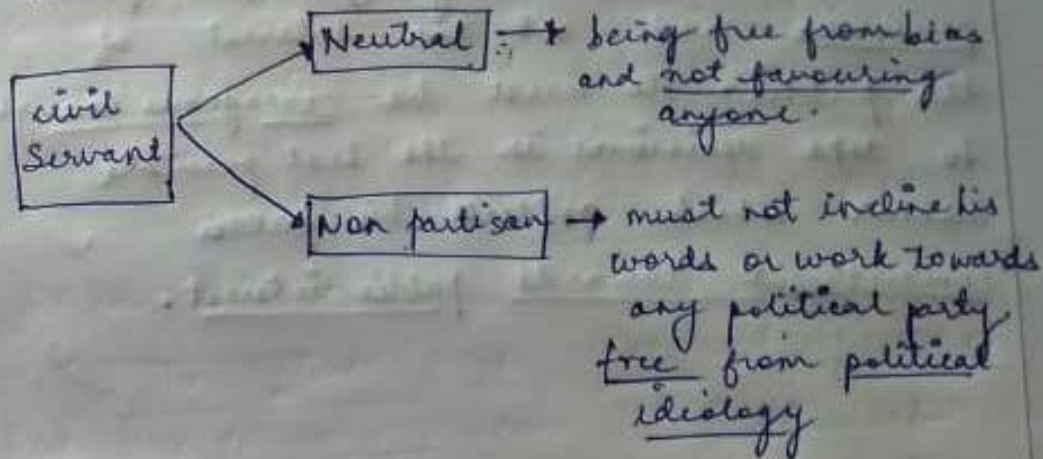 Neutral → being free from bias
and not favouring
anyone.
civil
Servant
Non partisan → must not incline his
words or work towards
any political party,
free from political
idiology